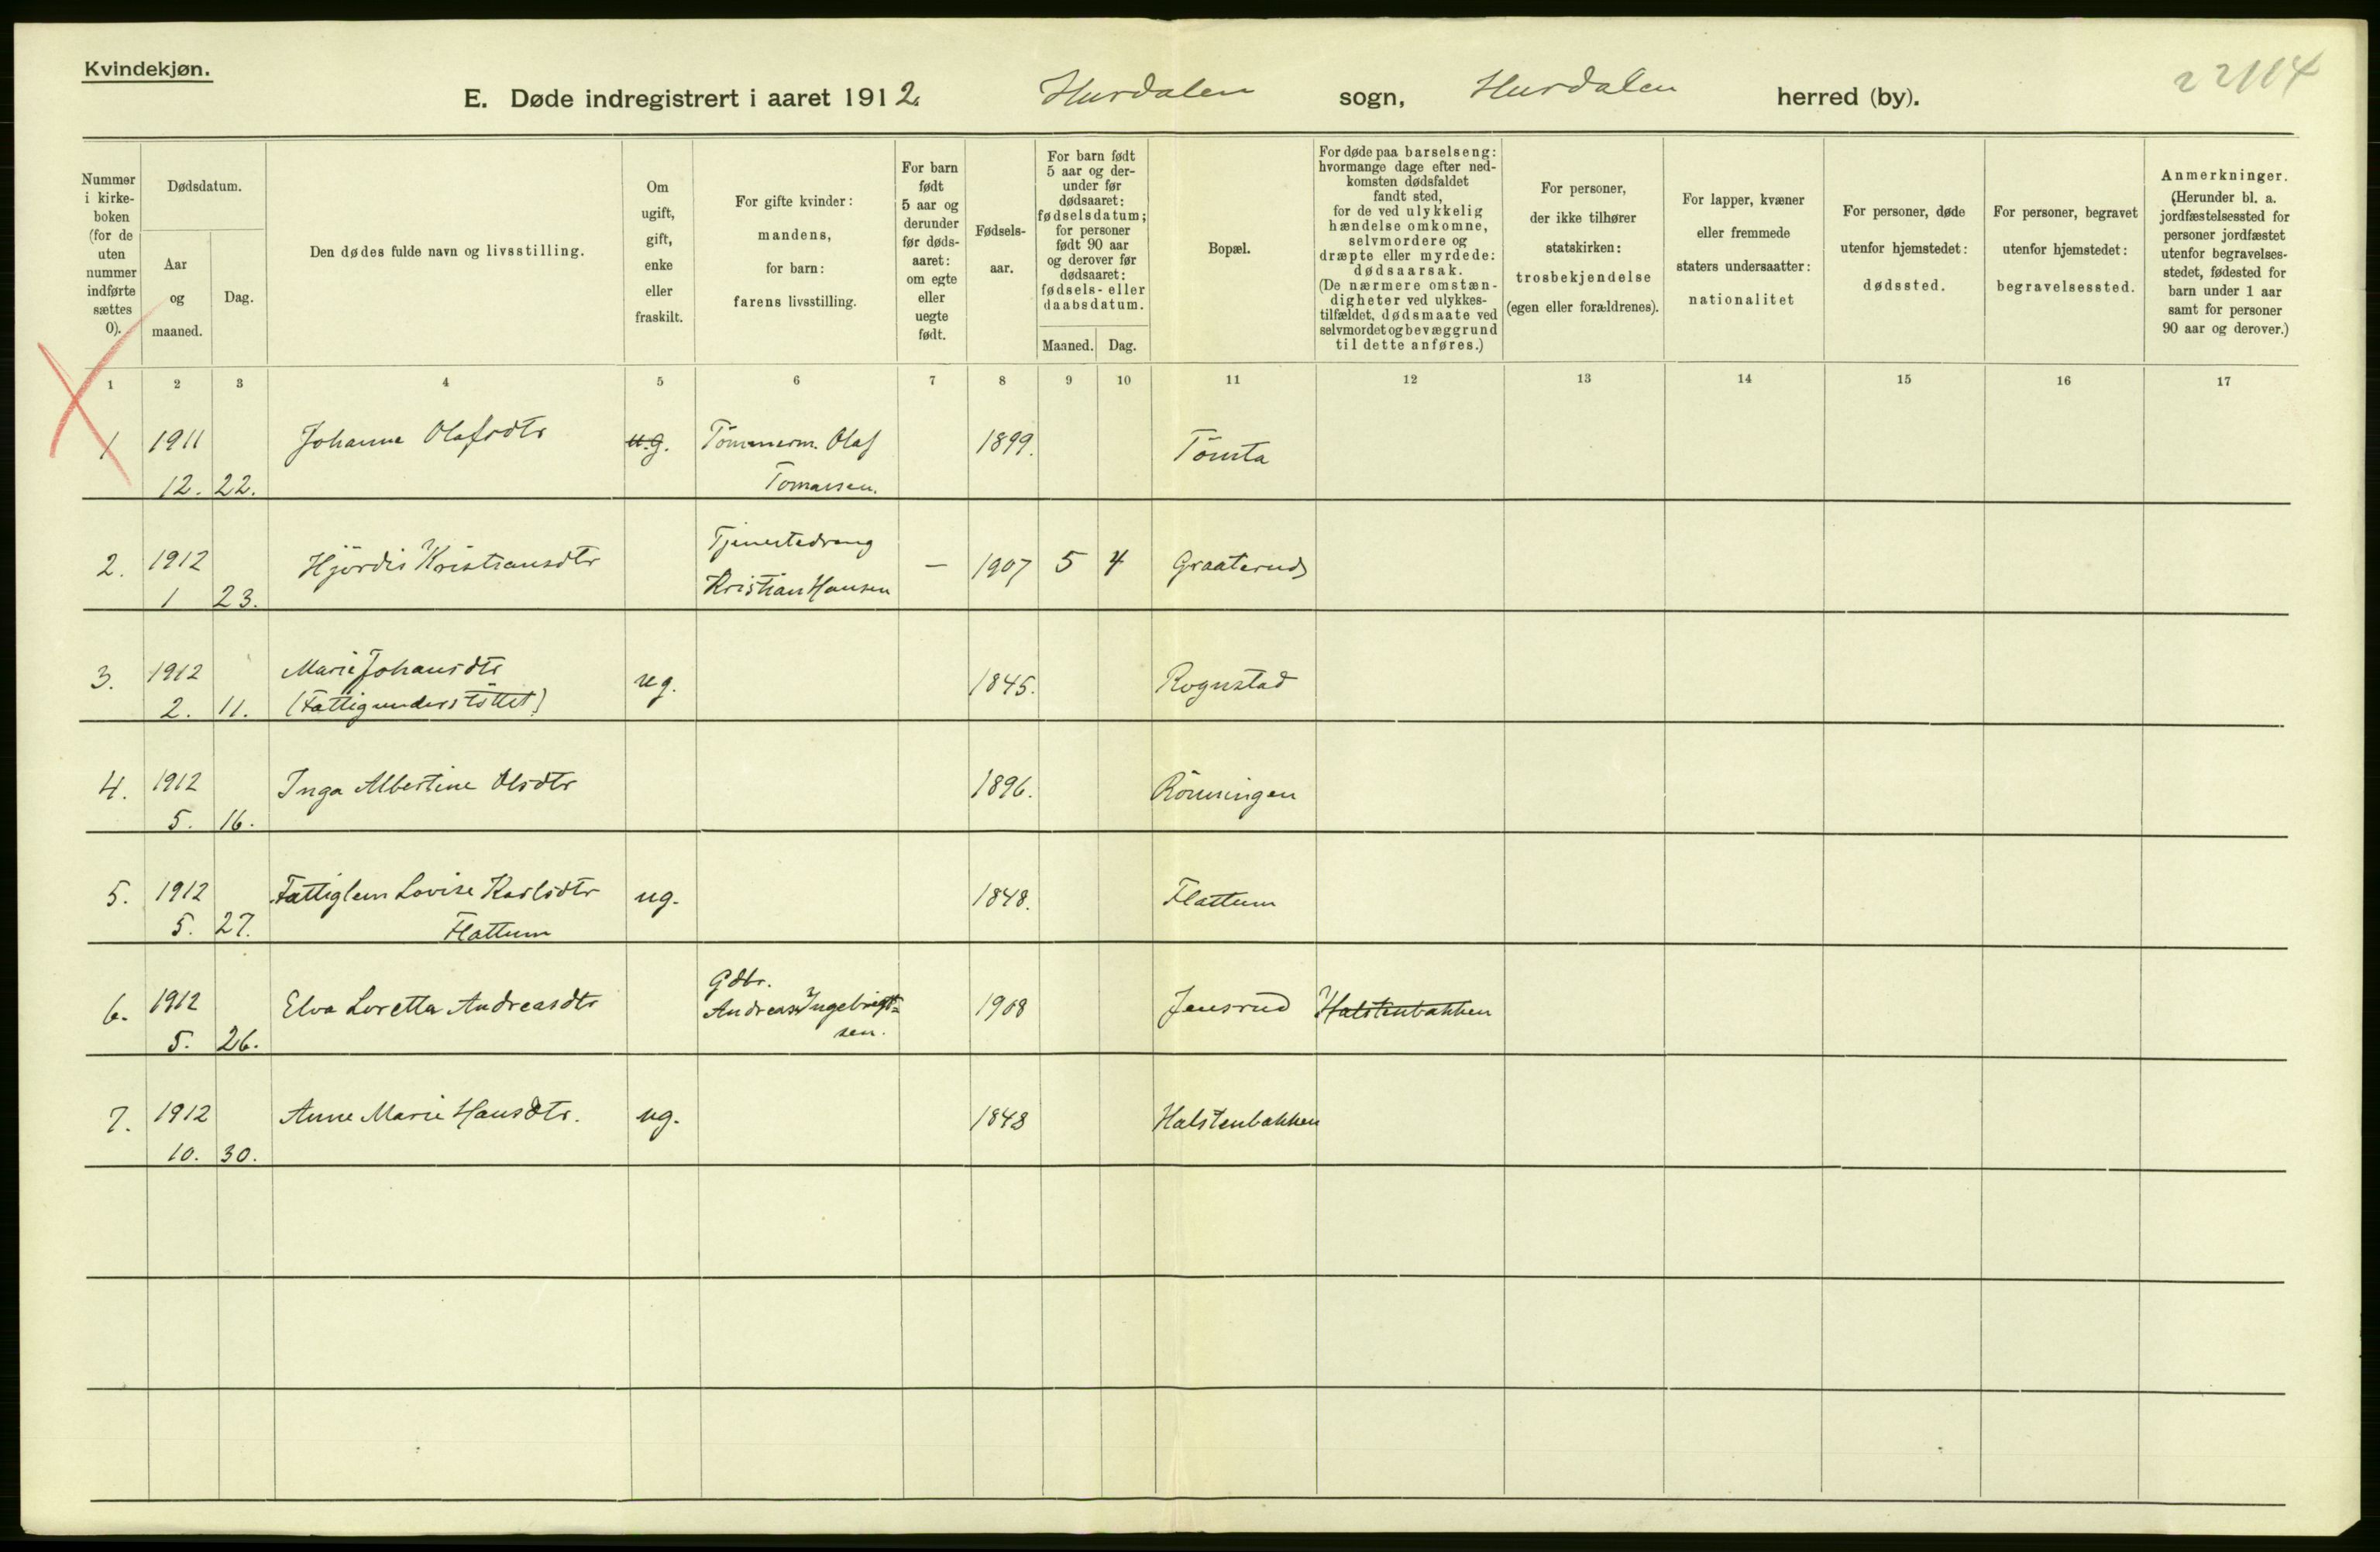 Kvindekjøn.
E. Døde indregistrert i aaret 1912. Hurdalen sogn, Hurdalen herred (by).
22114
Nummer i kirke-boken (for de uten nummer indførte sættes 0).
Dødsdatum.
Aar og maaned.
Dag.
Den dødes fulde navn og livsstilling.
Om ugift, gift, enke eller fraskilt.
For gifte kvinder: mandens, for barn: farens livsstilling.
For barn født 5 aar og derunder før døds-aaret: om egte eller uegte født.
Fødsels-aar.
For barn født 5 aar og der-under før dødsaaret: fødselsdatum; for personer født 90 aar og derover før dødsaaret: fødsels- eller daabsdatum.
Maaned. Dag.
Bopæl.
For døde paa barselseng: hvormange dage efter ned-komsten dødsfaldet fandt sted, for de ved ulykkelig hændelse omkomne, selvmordere og dræpte eller myrdede: dødsaarsak. (De nærmere omstæn-digheter ved ulykkes-tilfældet, dødsmaate ved selvmordet og bevæggrund til dette anføres.)
For personer, der ikke tilhører statskirken: trosbekjendelse (egen eller forældrenes).
For lapper, kvæner eller fremmede staters undersaatter: nationalitet
For personer, døde utenfor hjemstedet: dødssted.
For personer, begravet utenfor hjemstedet: begravelsessted.
Anmerkninger. (Herunder bl. a. jordfæstelsessted for personer jordfæstet utenfor begravelses-stedet, fødested for barn under 1 aar samt for personer 90 aar og derover.)
1 2 3 4 5 6 7 8 9 10 11 12 13 14 15 16 17
1 1911 Johanne Olafsdtr u.g. Tömmerm. Olaf 1899. Tömta
12. 22. Tomassen.
Tjenestedreng
2. 1912 Hjördis Kristiansdtr — 1907 5 4 Graaterud
1 23. Kristian Hansen
3. 1912 Marie Johansdtr ug. 1845. Rognstad
2. 11. (Fattigunderstöttet)
4. 1912 Inga Albertine Olsdtr 1896. Rönningen
5. 16.
5. 1912 Fattiglem Lovise Karlsdtr ug. 1848. Flattum
5. 27. Flattum
Gdbr.
6. 1912 Elva Loretta Andreasdtr Andreas Ingebrigt= 1908 Jensrud Halstenbakken
5. 26. sen.
7. 1912 Anne Marie Hansdtr. ug. 1848 Halstenbakken
10. 30.